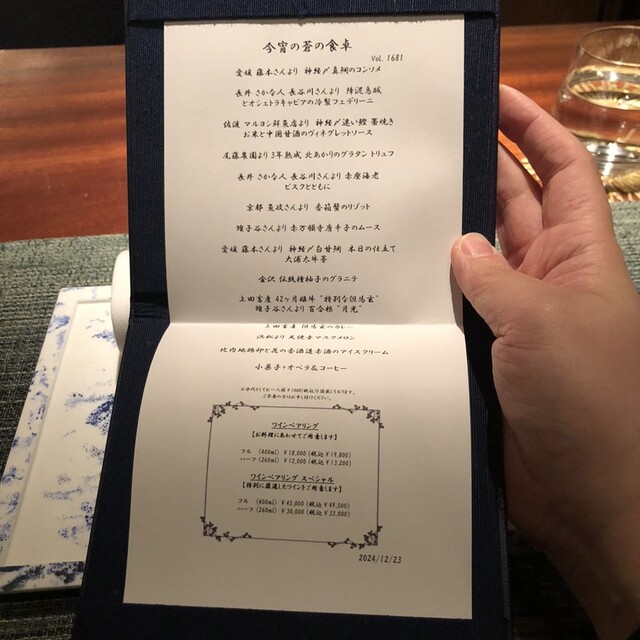 今宵の蒼の食卓
Vol. 1681
愛媛 藤本さんより 神経〆真鯛のコンソメ
長井 さかな人 長谷川さんより 障泥烏賊
とオシェトラキャビアの冷製フェデリーニ
佐渡 マルヨシ鮮魚店より 神経〆迷い鰹 藁焼き
お米と中国甘酒のヴィネグレットソース
尾藤農園より3年熟成 北あかりのグラタン トリュフ
長井 さかな人 長谷川さんより 赤座海老
ビスクとともに
京都 魚政さんより 香箱蟹のリゾット
雉子谷さんより 赤万願寺唐辛子のムース
愛媛 藤本さんより 神経〆白甘鯛 本日の仕立て
大浦太牛蒡
金沢 伝統種柚子のグラニテ
上田畜産 42ヶ月雌牛 "特別な但馬玄"
雉子谷さんより 百合根 "月光"
上田畜産 但馬玄のカレー
浜松より 天使音マスクメロン
比内地鶏卵と花の香酒造赤酒のアイスクリーム
小菓子・オペラ&コーヒー
お水代としてお一人様¥1000(税込)頂戴しております。
ご不要の方はお申し付けください。
ワインペアリング
【お料理にあわせてご用意します】
フル (400ml) ¥18,000(税込¥19,800)
ハーフ(260ml) ¥12,000(税込¥13,200)
ワインペアリング スペシャル
【特別に厳選したワインをご用意します】
フル (400ml) ¥45,000(税込¥49,500)
ハーフ(260ml) ¥30,000(税込¥33,000)
2024/12/23